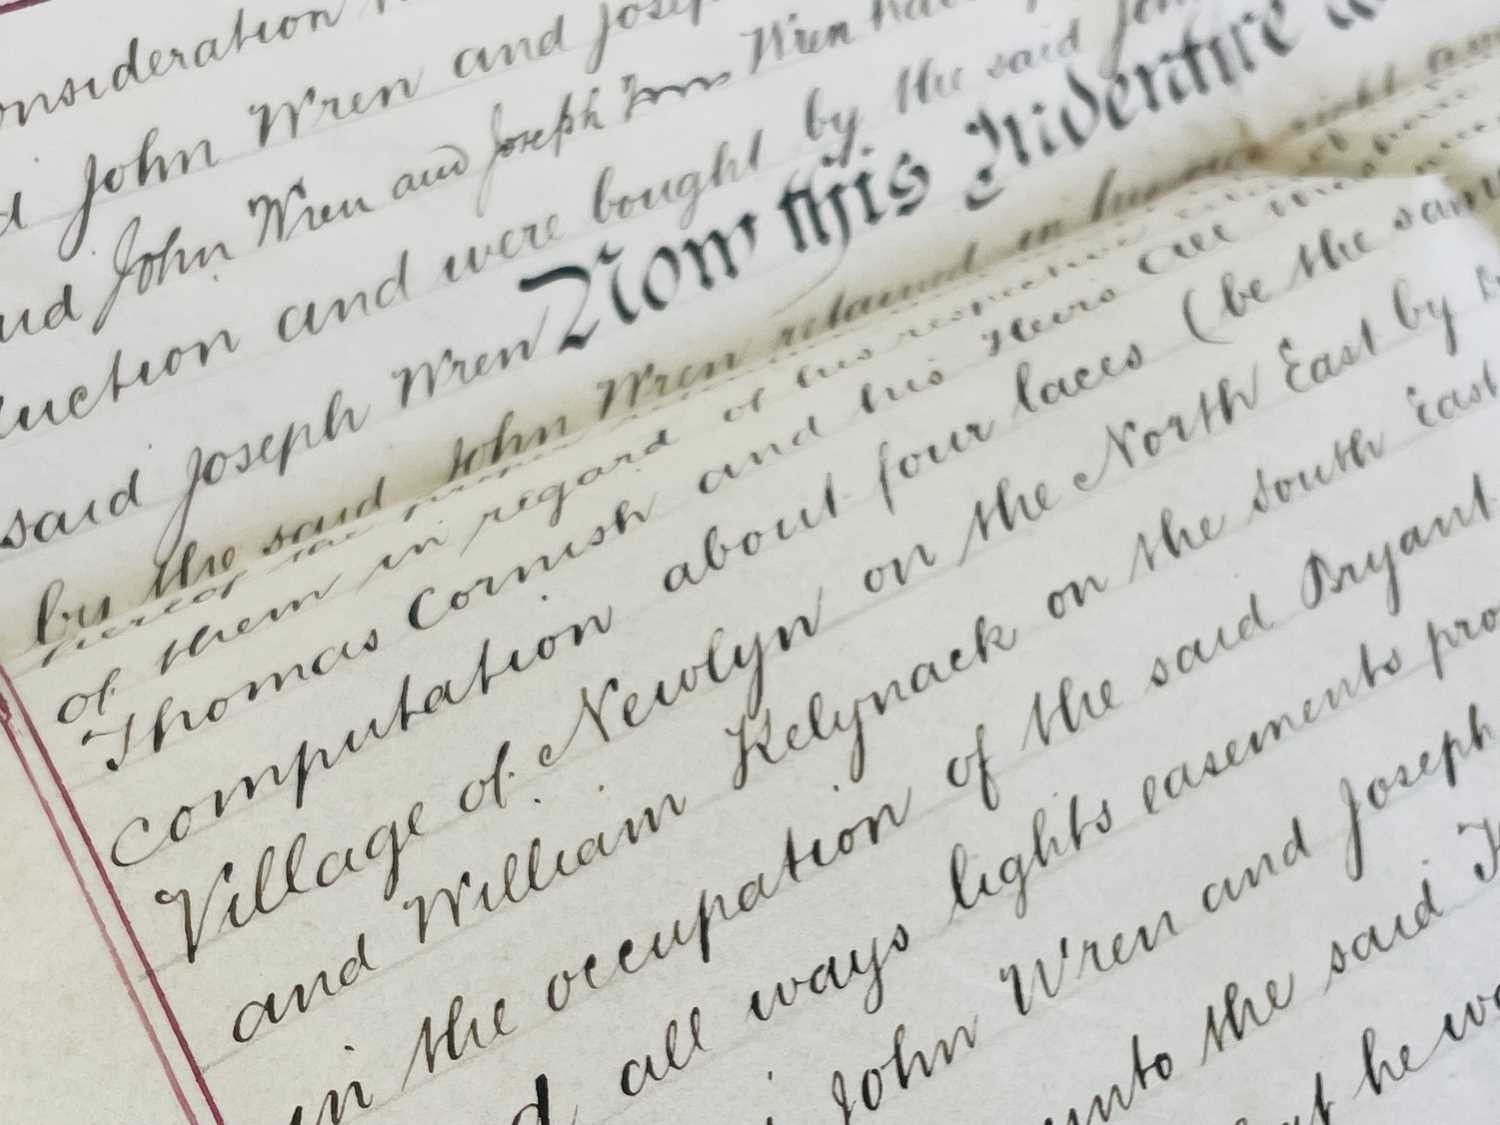 onsideration
John Wren and Joseph
ud John Wren and Joseph Wren
uction and were bought by the said
said Joseph Wren Now this Indenture
by the said John Wren retained in
of them in regard of his respective
Thomas Cornish and his Heirs All
computation about four laces (be the same
Village of Newlyn on the North East by
and William Kelynack on the South East
in the occupation of the said Bryant
d all ways lights easements pro
John Wren and Joseph
unto the said
he wa